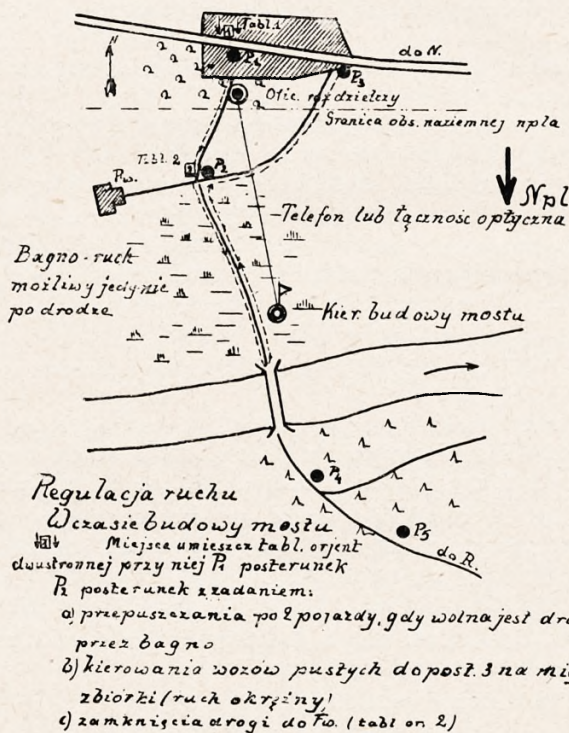 Tabl.1
1
do N.
P1
P3
Ofic. rozdzielczy
Granica obs. naziemnej npla
Tabl. 2
2
P2
Fw.
Npl
Telefon lub łączność optyczna
Bagno-ruch
możliwy jedynie
po drodze
Kier. budowy mostu
P4
P5
do R.
Regulacja ruchu
W czasie budowy mostu
1 Miejsce umieszcz tabl. orjent
dwustronnej przy niej P1 posterunek
P2 posterunek z zadaniem:
a) przepuszczania po 2 pojazdy, gdy wolna jest
przez bagno
b) kierowania wozów pustych do post. 3 na
zbiórki (ruch okrężny)
c) zamknięcia drogi do Fw. (tabl or. 2)